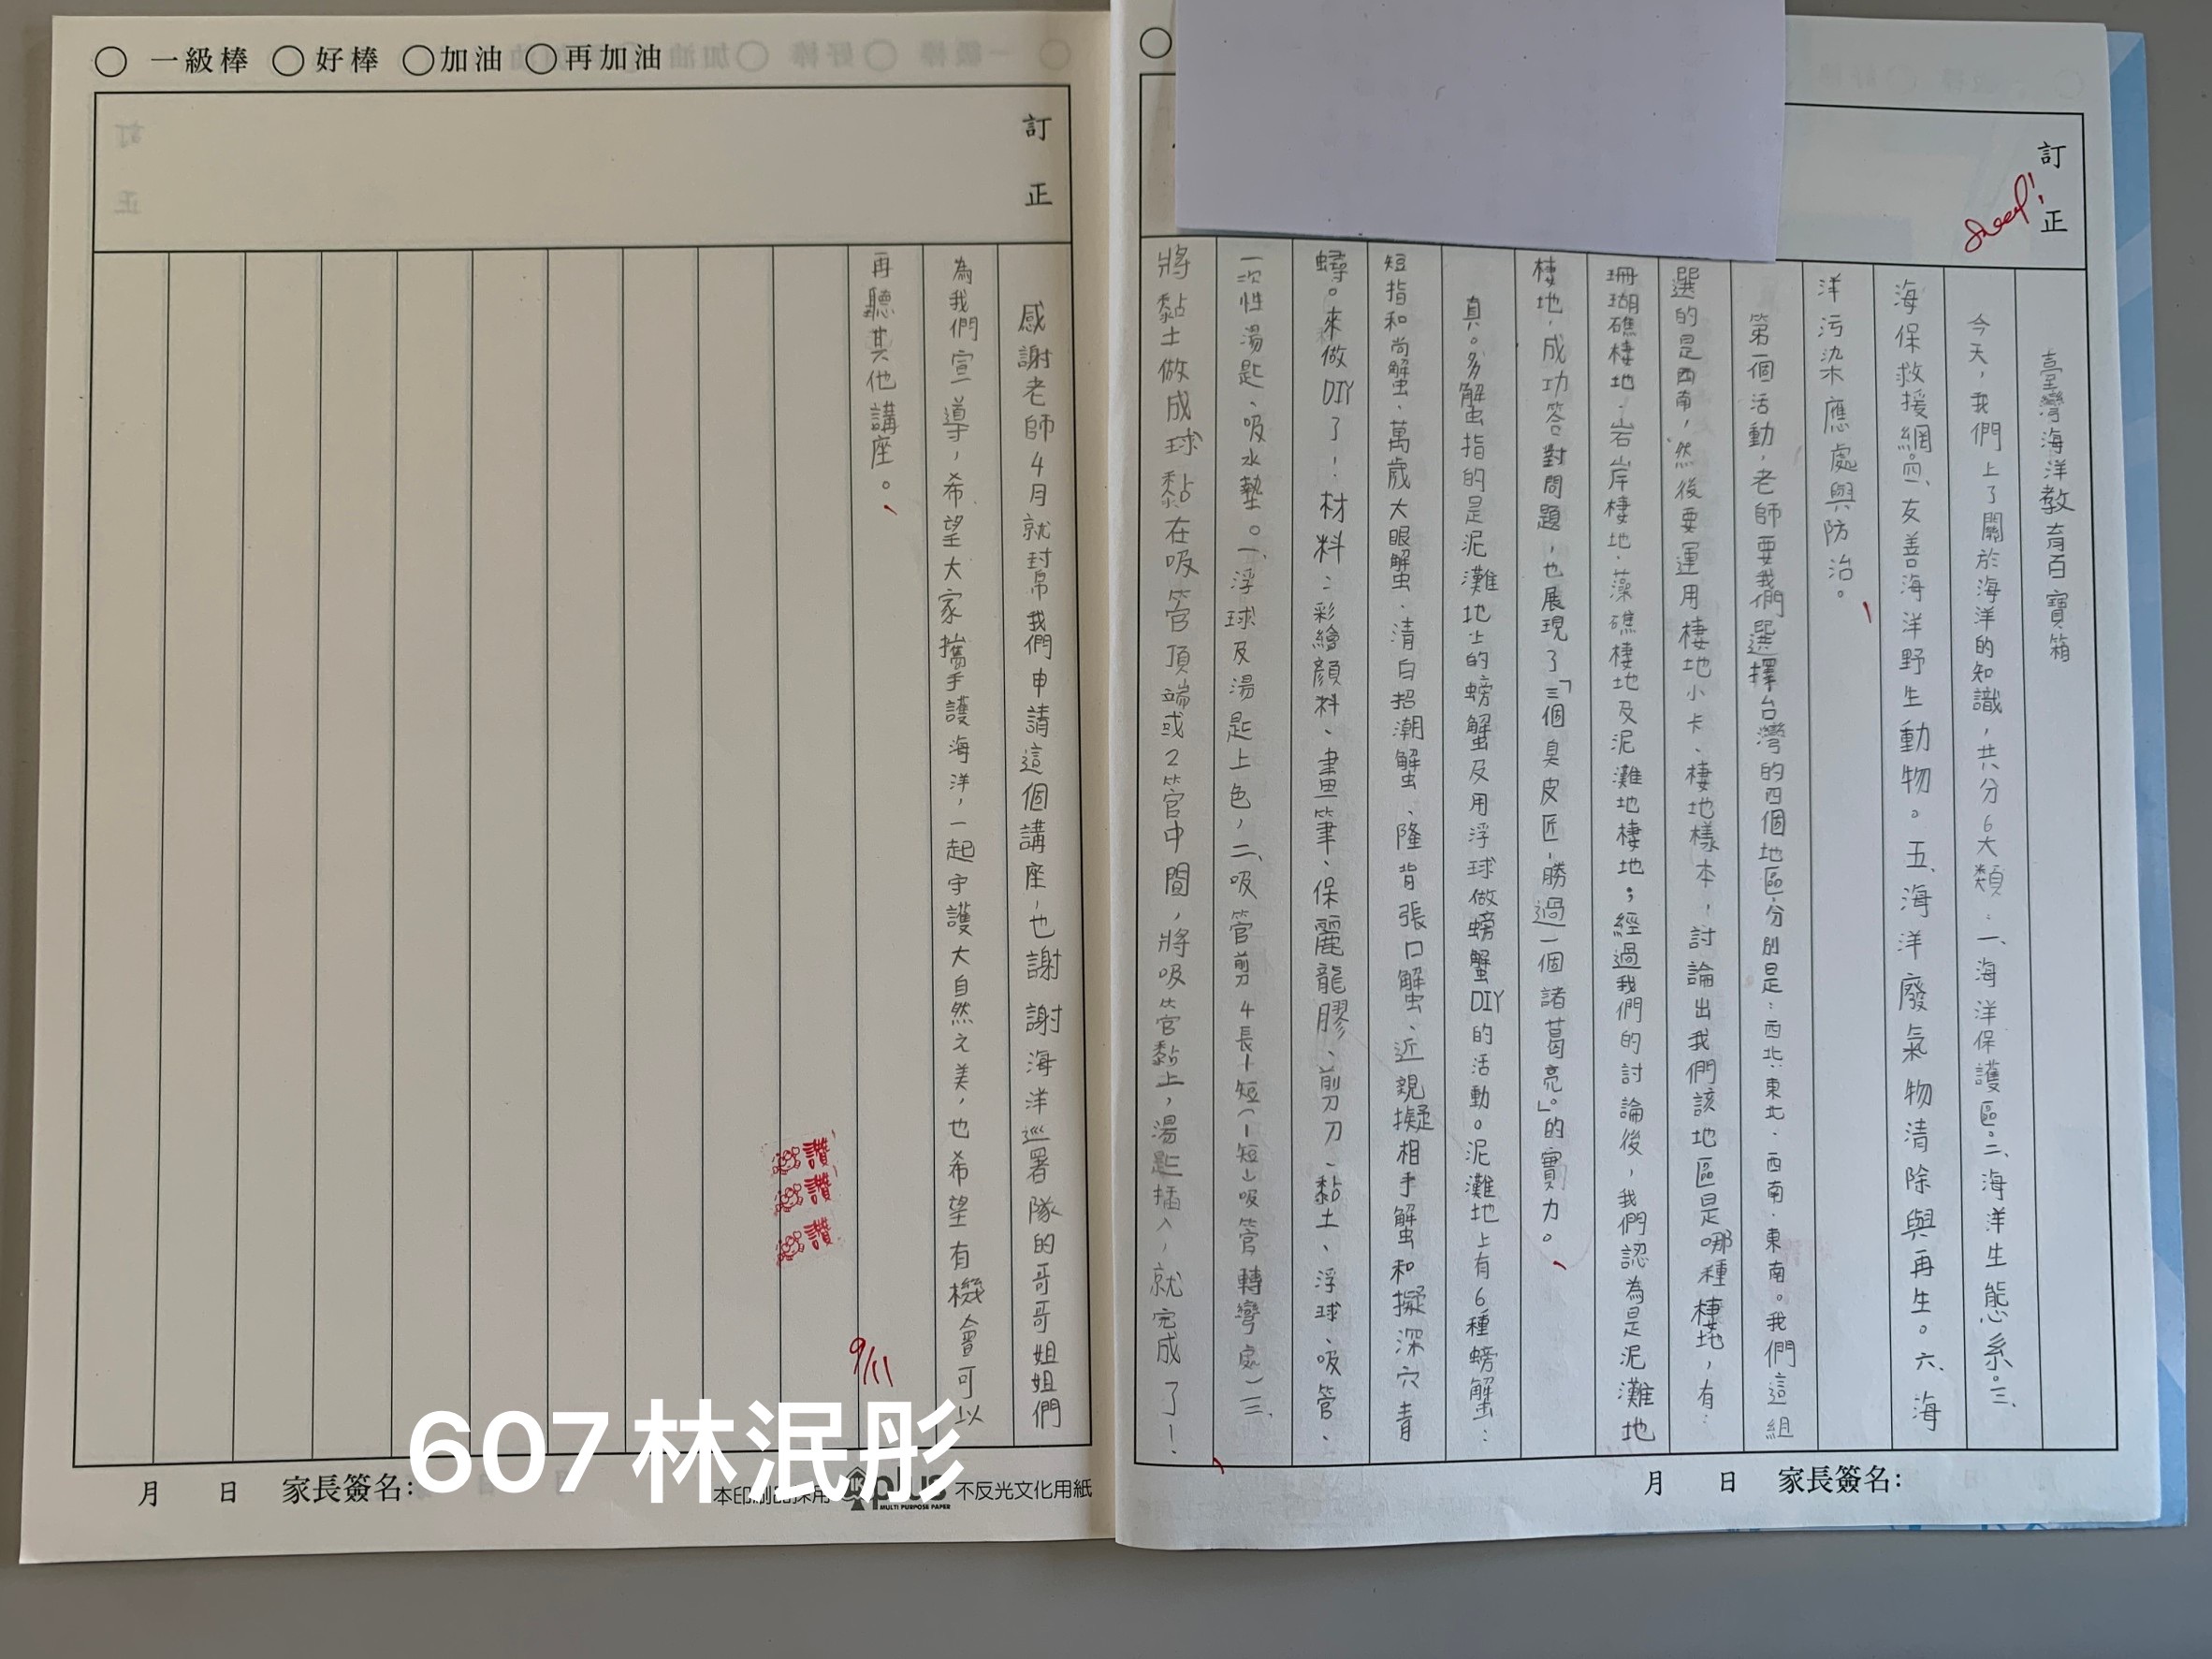 訂正
good!
臺灣海洋教育百寶箱
今天，我們上了關於海洋的知識，共分6大類：一、海洋保護區。二、海洋生態系。三、
海保救援網。四、友善海洋野生動物。五、海洋廢氣物清除與再生。六、海
洋污染應處與防治。
第一個活動，老師要我們選擇台灣的四個地區，分別是：西北、東北、西南、東南。我們這組
選的是西南，然後要運用棲地小卡、棲地樣本，討論出我們該地區是哪種棲地，有：
珊瑚礁棲地、岩岸棲地、藻礁棲地及泥灘地棲地；經過我們的討論後，我們認為是泥灘地
棲地，成功答對問題，也展現了「三個臭皮匠，勝過一個諸葛亮。」的實力。
真。多蟹指的是泥灘地上的螃蟹及用浮球做螃蟹DIY的活動。泥灘地上有6種螃蟹：
短指和尚蟹、萬歲大眼蟹、清白招潮蟹、隆背張口蟹、近親擬相手蟹和擬深穴青
蟳。來做DIY了！材料：彩繪顏料、畫筆、保麗龍膠、剪刀、黏土、浮球、吸管、
一次性湯匙、吸水墊。一、浮球及湯匙上色，二、吸管剪4長1短(1短以吸管轉彎處)三、
將黏土做成球黏在吸管頂端或2管中間，將吸管黏上，湯匙插入，就完成了！
月 日 家長簽名：
一級棒 好棒 加油 再加油
訂正
感謝老師4月就封帛我們申請這個講座，也謝謝海洋巡署隊的哥哥姐姐們
為我們宣導，希望大家攜手護海洋，一起守護大自然之美，也希望有機會可以
再聽其他講座。
9/11
讚
讚
讚
月 日 家長簽名：
607林泯彤
本印刷品採用 plus 不反光文化用紙
MULTI PURPOSE PAPER